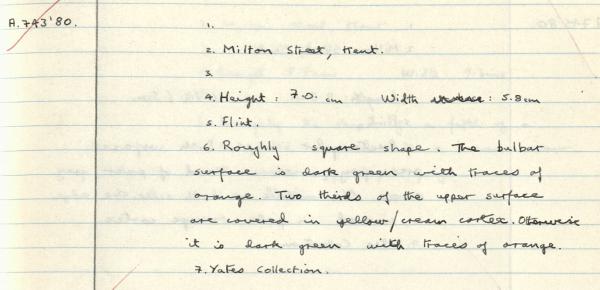 A.743'80.
1.
2. Milton Street, Kent.
3.
4. Height : 7.0. cm Width : 5.8cm
5. Flint.
6. Roughly square shape. The bulbar
surface is dark green with traces of
orange. Two thirds of the upper surface
are covered in yellow/cream cortex. Otherwise
it is dark green with traces of orange.
7. Yates Collection.